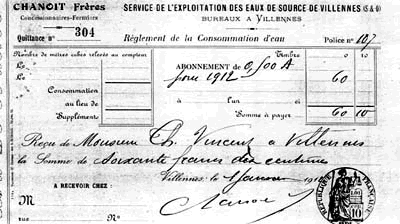 CHANOIT Frères
Concessionnaires-Fermiers
SERVICE DE L'EXPLOITATION DES EAUX DE SOURCE DE VILLENNES (S & O)
BUREAUX A VILLENNES
Quittance n° 304
Règlement de la Consommation d'eau
Police n° 107
Nombre de mètres cubes relevés au compteur
Timbre 0 10
ABONNEMENT de 0,500 A
pour 1912 60
Consommation
au lieu de à l'un
Supplément Somme à payer 60 10
Reçu de Monsieur Ch. Vincent à Villennes
la Somme de soixante francs dix centimes
Villennes, le 1 Janvier 191
A RECEVOIR CHEZ :
M
rue
RÉPUBLIQUE FRANÇAISE
10